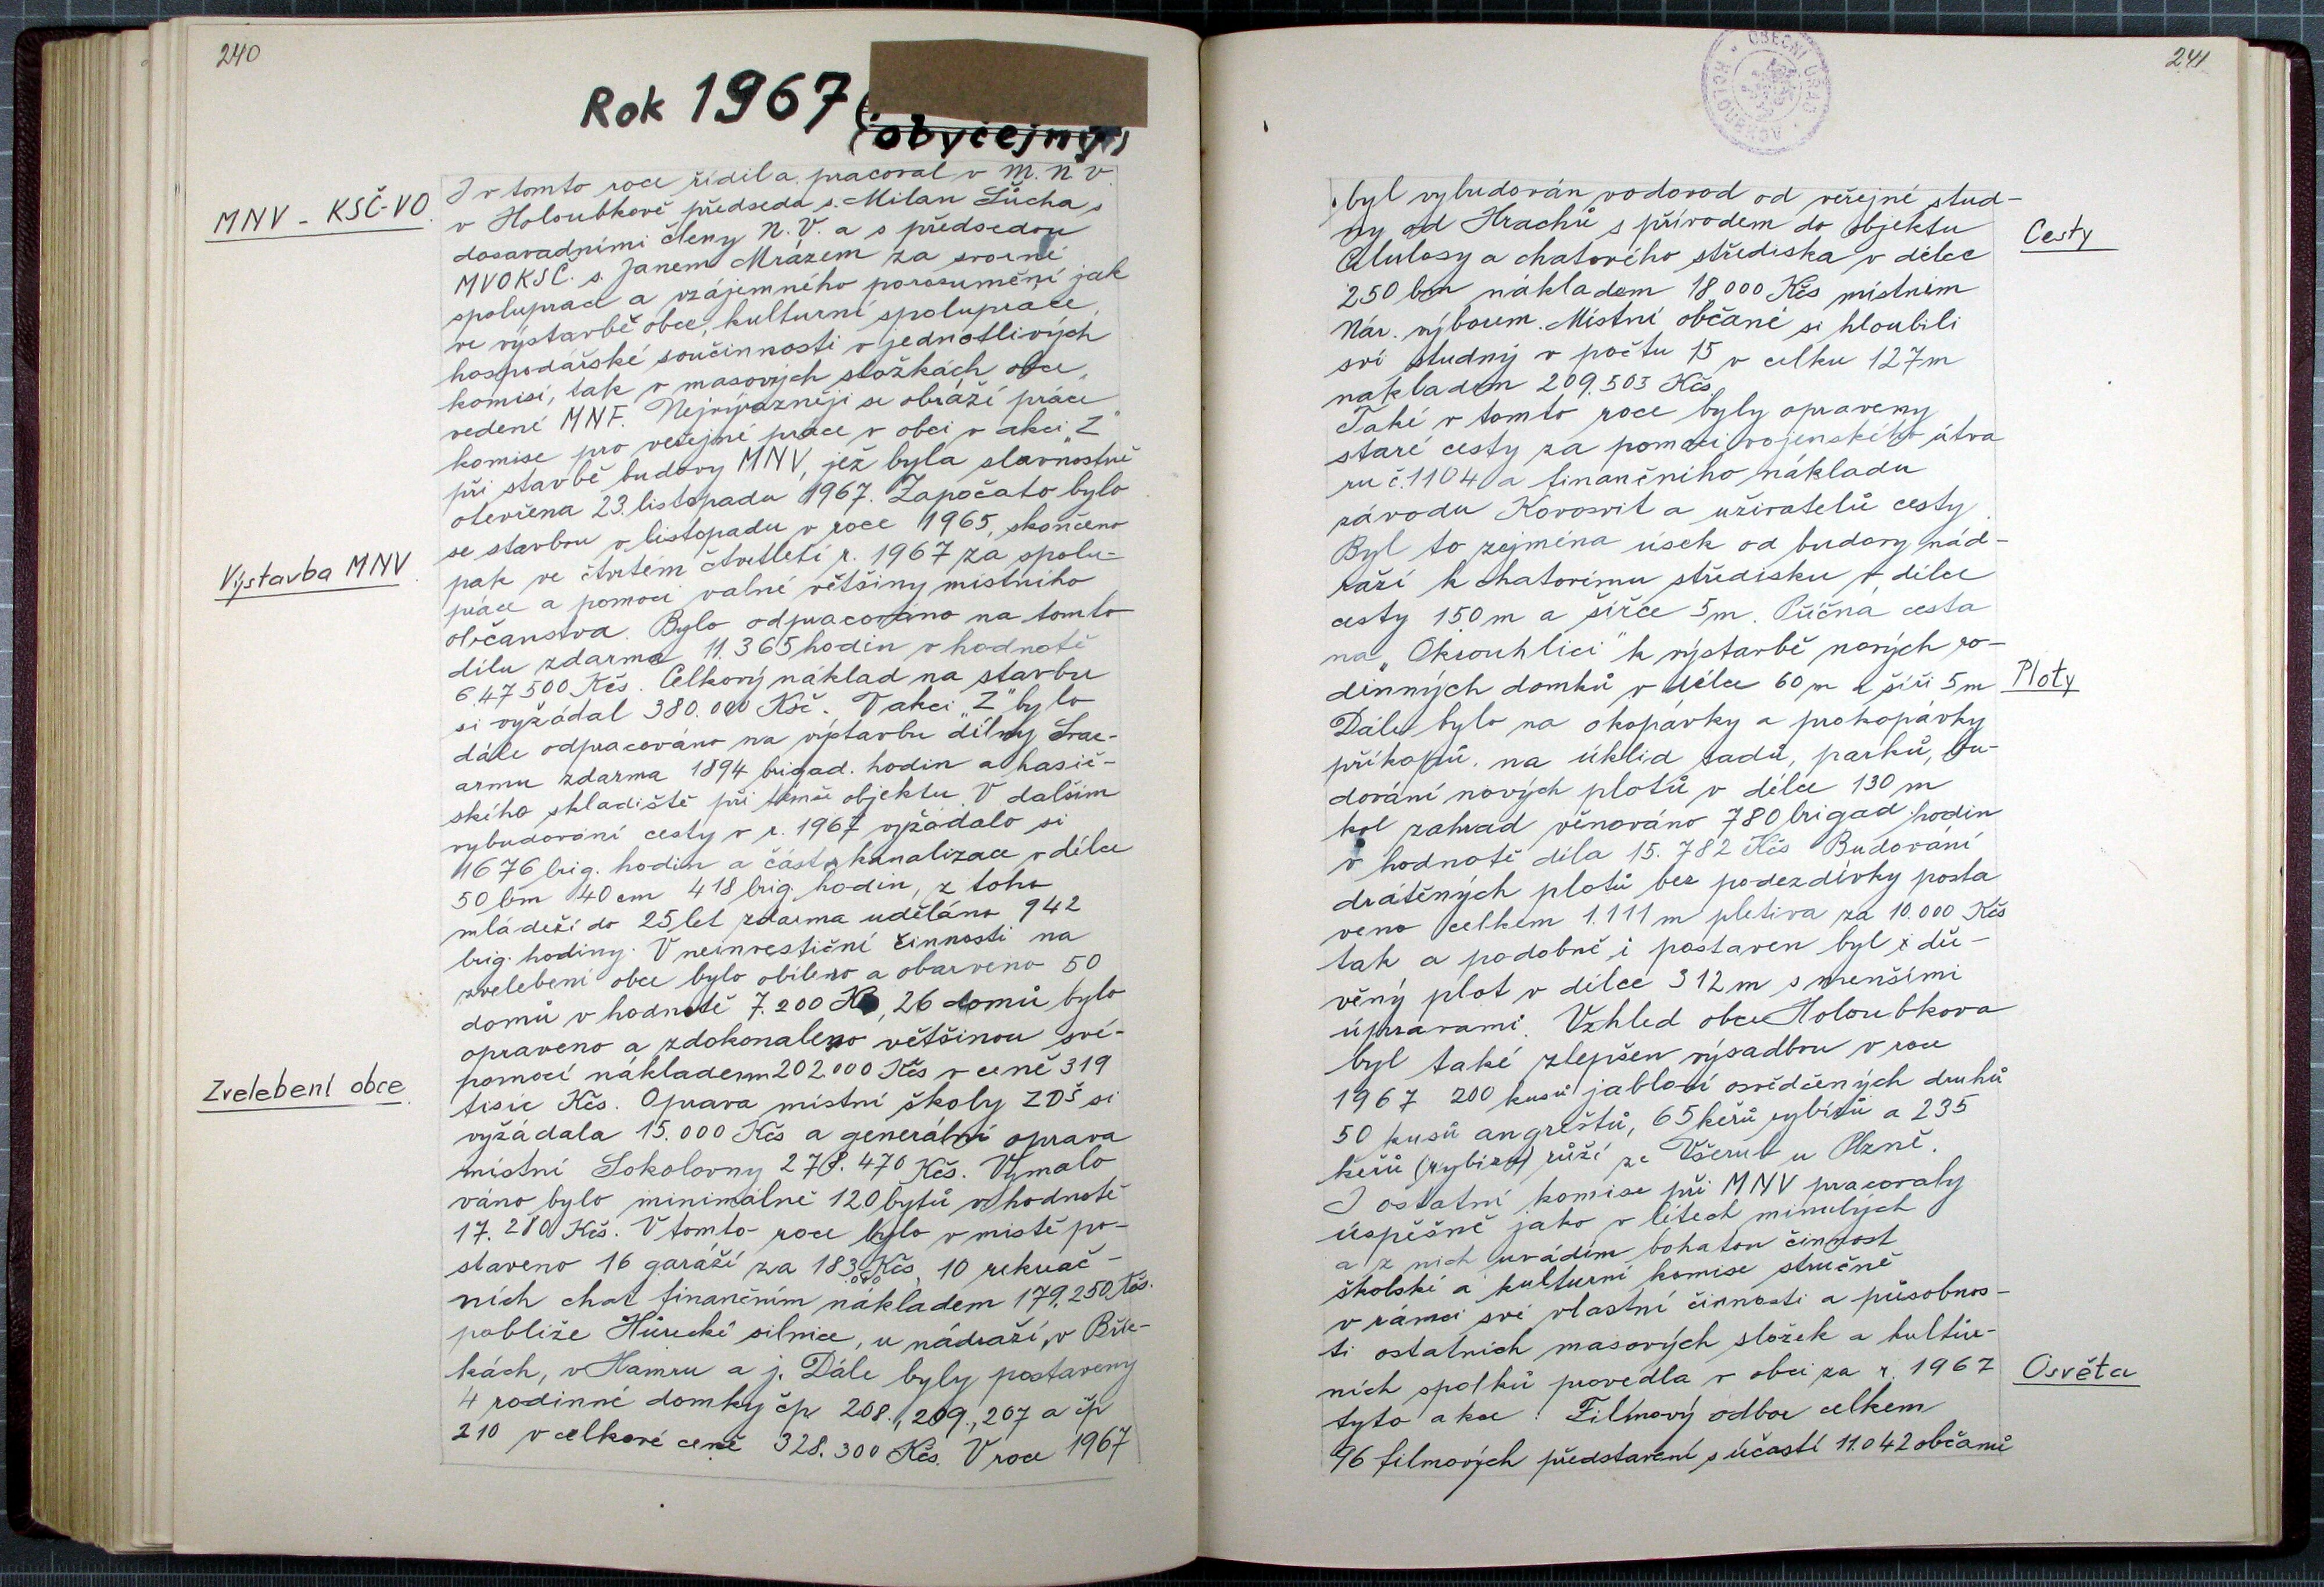 240
Rok 1967 (obyčejný)
MNV - KSČ-VO.
I v tomto roce řídil a pracoval v M.N.V.
v Holoubkově předseda s. Milan Šůcha s
dosavadními členy N.V. a s předsedou
MVOKSČ. s. Janem Mrázem za svorné
spolupráce a vzájemného porozumění jak
ve výstavbě obce, kulturní spolupráce,
hospodářské součinnosti v jednotlivých
komisí, tak v masových složkách obce,
vedené MNF. Nejvýrazněji se obráží práce
komise pro veřejné práce v obci v akci „Z"
při stavbě budovy MNV, jež byla slavnostně
otevřena 23. listopadu 1967. Započato bylo
se stavbou v listopadu v roce 1965, skončeno
Výstavba MNV
pak ve čtvrtém čtvrtletí r. 1967 za spolu-
práce a pomoci valné většiny místního
občanstva. Bylo odpracováno na tomto
dílu zdarma 11.365 hodin v hodnotě
6.47 500 Kčs. Celkový náklad na stavbu
si vyžádal 380.000 Kčs. V akci „Z" bylo
dále odpracováno na výstavbu dílny Svaz-
armu zdarma 1894 brigad. hodin a hasič-
ského skladiště při témže objektu. V dalším
vybudování cesty v r. 1967 vyžádalo si
1676 brig. hodin a část kanalizace v délce
50 bm 40 cm 418 brig. hodin, z toho
mládeží do 25 let zdarma uděláno 942
brig. hodiny. V neinvestiční činnosti na
zvelebení obce bylo obíleno a obarveno 50
domů v hodnotě 7.200 Kčs, 26 domů bylo
opraveno a zdokonaleno většinou své-
pomocí nákladem 202.000 Kčs v ceně 319
Zvelebení obce
tisíc Kčs. Oprava místní školy ZDŠ si
vyžádala 15.000 Kčs a generální oprava
místní Sokolovny 278.470 Kčs. Vymalo
váno bylo minimálně 120 bytů v hodnotě
17.280 Kčs. V tomto roce bylo v místě po-
staveno 16 garáží za 183.000 Kčs, 10 rekreač-
ních chat finančním nákladem 179.250 Kčs.
poblíže Hůrecké silnice, u nádraží, v
kách, v Hamru a j. Dále byly postaveny
4 rodinné domky čp 208., 209., 207 a čp
210 v celkové ceně 328.300 Kčs. V roce 1967
241
OBECNÍ ÚŘAD HOLOUBKOV
byl vybudován vodovod od veřejné stud-
ny od Hrachů s přívodem do objektu
Cesty
Celulosy a chatového střediska v délce
250 bm nákladem 18.000 Kčs místním
Nár. výborem. Místní občané si hloubili
své studny v počtu 15 v celku 127 m
nákladem 209.503 Kčs.
Také v tomto roce byly opraveny
staré cesty za pomoci vojenského útva
ru č. 1104 a finančního nákladu
závodu Kovosvit a uživatelů cesty.
Byl to zejména úsek od budovy nád-
raží k chatovému středisku v délce
cesty 150 m a šířce 5 m. Příčná cesta
na „Okrouhlici" k výstavbě nových ro-
dinných domků v délce 60 m a šíři 5 m
Ploty
Dále bylo na okopávky a prokopávky
příkopů, na úklid sadů, parků, bu-
dování nových plotů v délce 130 m
kol zahrad věnováno 780 brigad. hodin
v hodnotě díla 15.782 Kčs Budování
drátěných plotů bez podezdívky posta
veno celkem 1.111 m pletiva za 10.000 Kčs
tak a podobně i postaven byl i dře-
věný plot v délce 312 m s menšími
úpravami. Vzhled obce Holoubkova
byl také zlepšen výsadbou v roce
1967 200 kusů jabloní osvědčených druhů
50 kusů angreštů, 65 keřů rybízů a 235
keřů (rybízu) růží ze Všerub u Plzně.
I ostatní komise při MNV pracovaly
úspěšně jako v létech minulých
a z nich uvádím bohatou činnost
školské a kulturní komise stručně
v rámci své vlastní činnosti a působnos-
ti ostatních masových složek a kultur-
ních spolků provedla v obci za r. 1967
Osvěta
tyto akce: Filmový odbor celkem
96 filmových představení s účastí 11.042 občanů